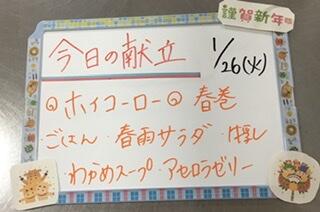 謹賀新年
今日の献立
1/26(火)
ホイコーロー 春巻
・ごはん・春雨サラダ・
・わかめスープ・アセロラゼリー